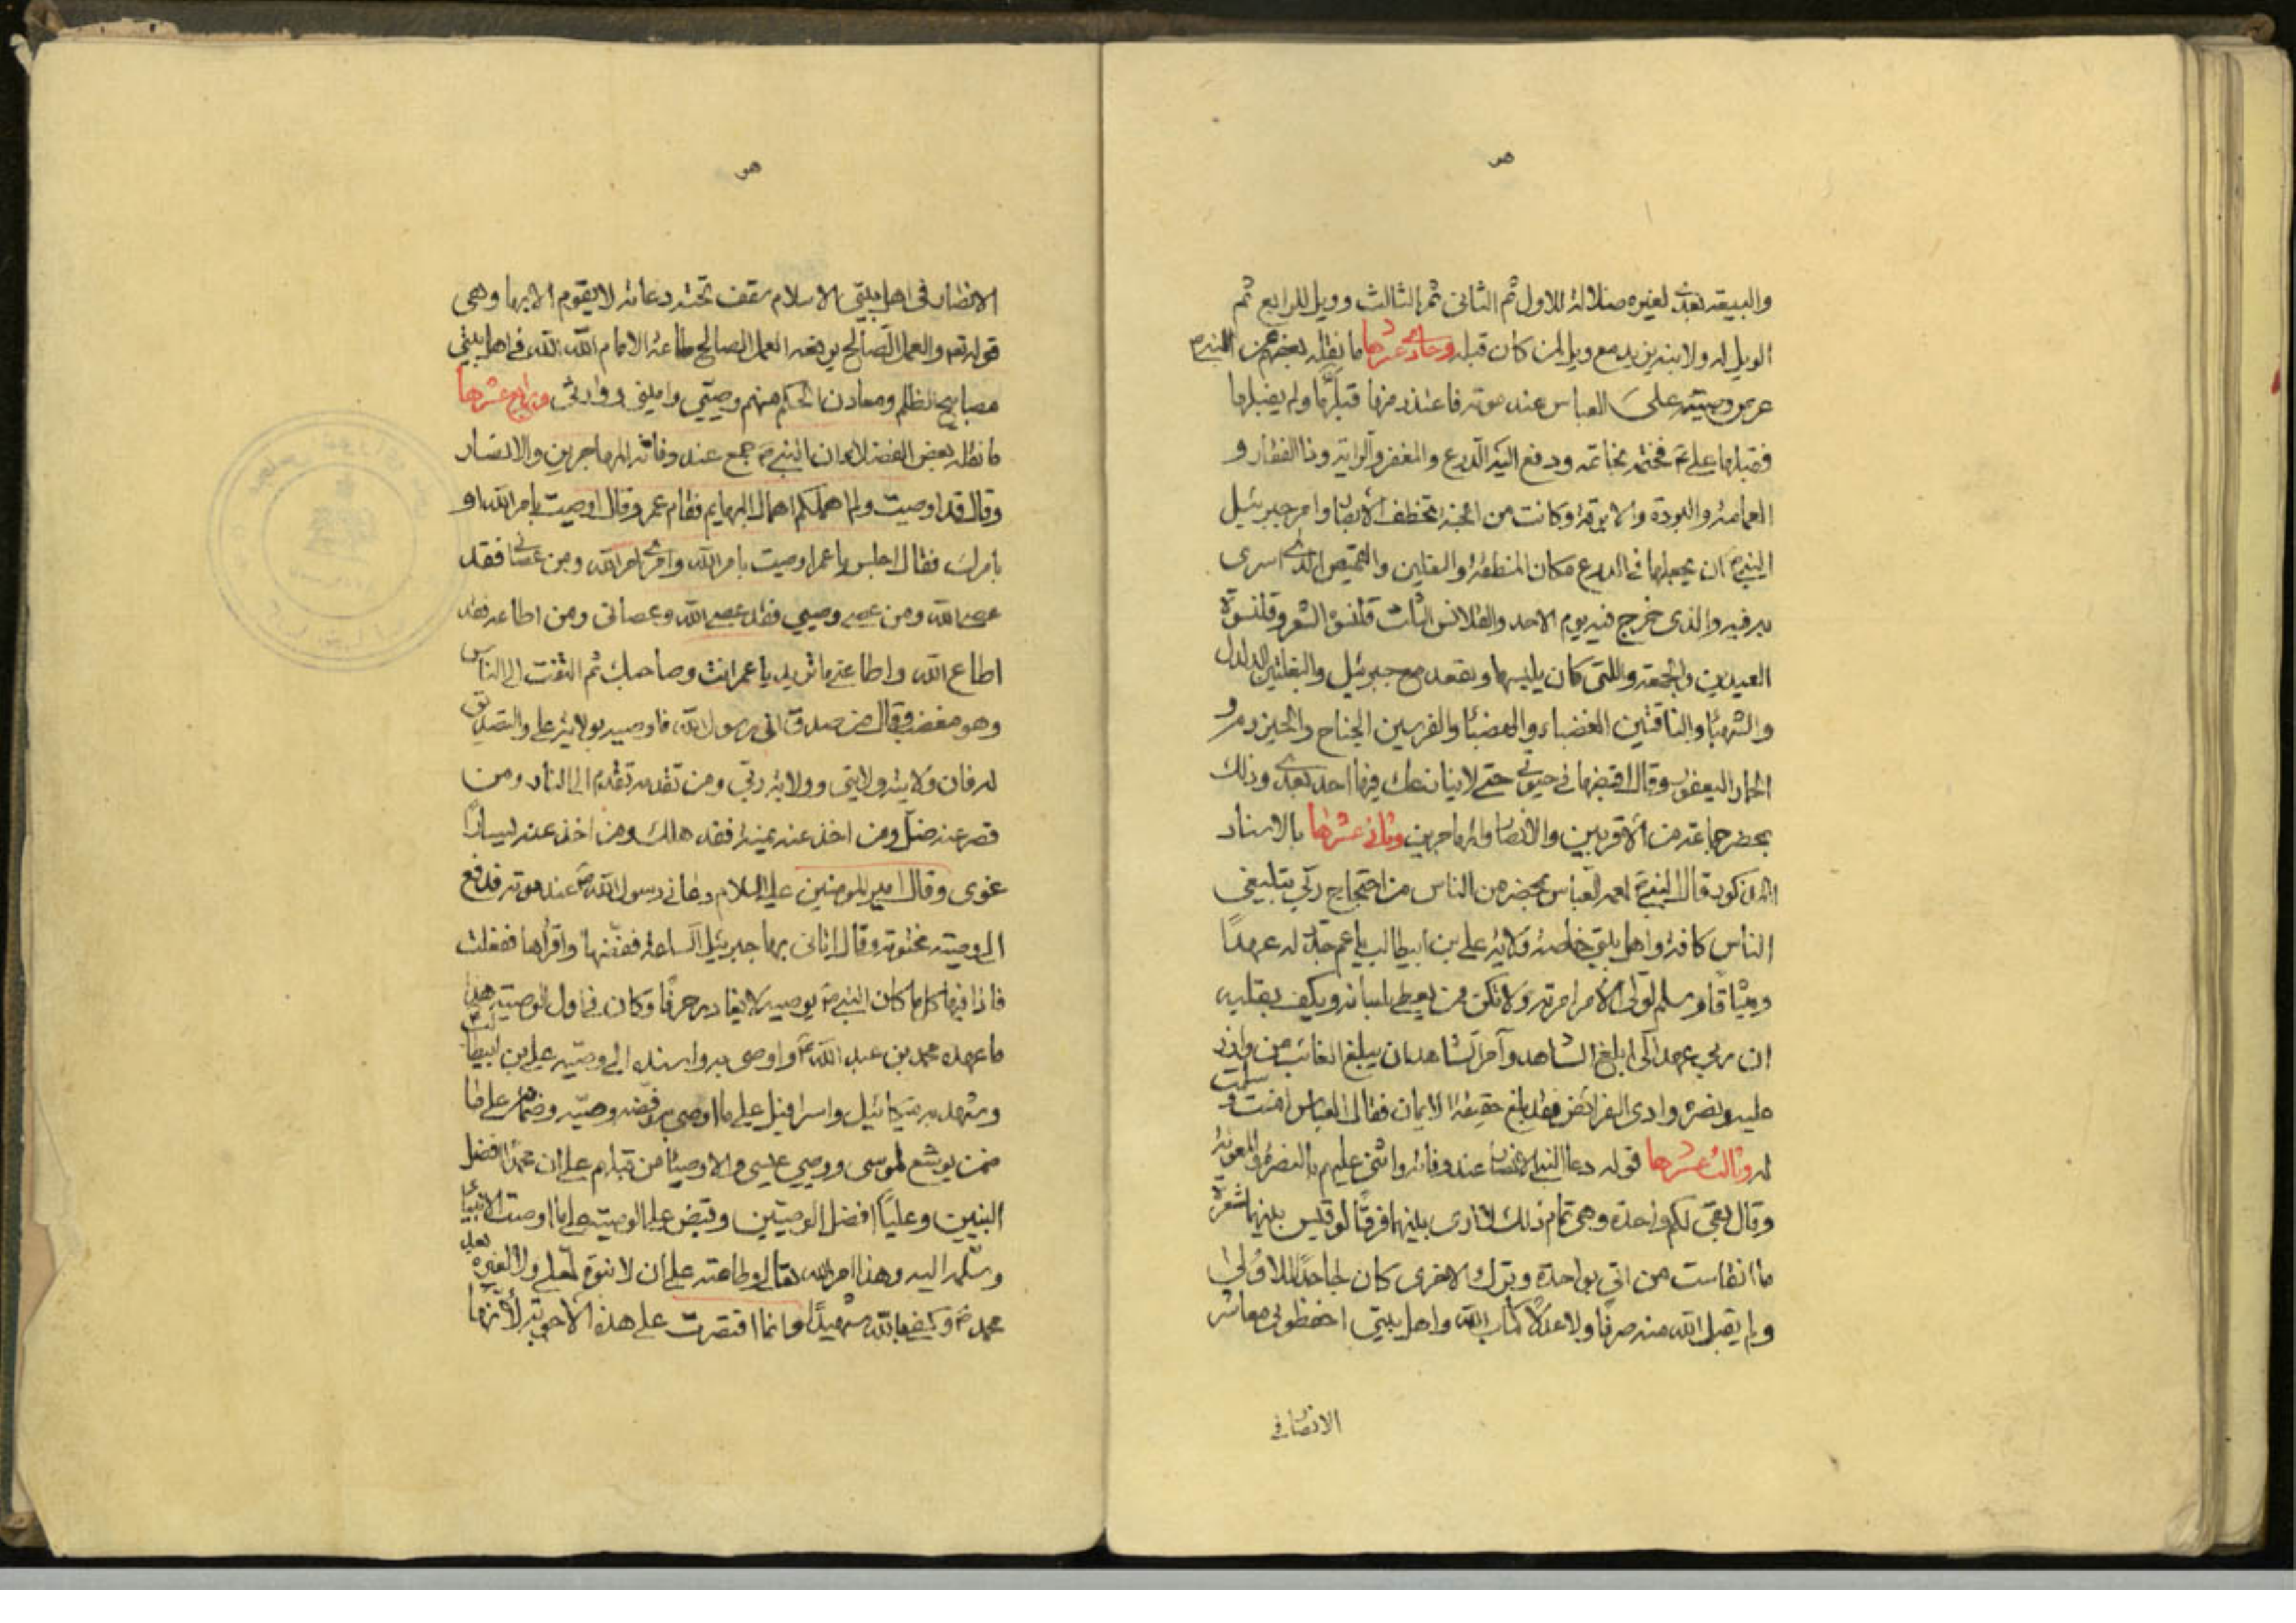 هو
والبيعة بعدى لغيره ضلالة للاول ثم الثانى ثم الثالث وويل للرابع ثم
الويل له ولابنه يزيد مع ويل لمن كان قبله وحادى عشرها ما نقله بعضهم من النبى ص
عرض وصيته على العباس عند موته فاعتذر منها قبلها ولم يقبلها
فقبلها على ع فختمه بخاتمه ودفع اليه الدرع والمغفر والراية وذا الفقار و
العمامة والبردة والابرقة وكانت من الجنة تخطف الابصار وامر جبرئيل
النبى ص ان يجعلها فى الدرع مكان المنطقة والنعلين والقميص الذى اسرى
به فيه والذى خرج فيه يوم الاحد والقلانس الثلث قلنسوة السفر وقلنسوة
العيدين والجمعة واللتى كان يلبسها ويقعد مع جبرئيل والبغلتين الدلدل
والشهباء والناقتين الغضباء والعضباء والفرسين الجناح والحيزوم و
الحمار اليعفور وقال اقبضها فى حيوتى حتى لا ينازعك فيها احد بعدى وذلك
بمحضر جماعة من الاقربين والانصار والمهاجرين وثانى عشرها بالاسناد
المذكور قال النبى ص لعمه العباس بمحضر من الناس من احتجاج ربى بتبليغى
الناس كافة واهل بيتى خاصة ولاية على بن ابيطالب يا عم جدد له عهدا
وميثاقا وسلم لولى الامر امرته ولا تكن ممن يعطى بلسانه ويكفر بقلبه
ان ربى عهد الى ابلغ الشاهد وآمر الشاهد ان يبلغ الغائب من وازر
عليا ونصره وادى الفرائض فقد بلغ حقيقة الايمان فقال العباس امنت و سلمت
له وثالث عشرها قوله دعا النبى الانصار عند وفاته واثنى عليهم بالنصرة والمعونة
وقال بقى لكم واحدة وهى تمام ذلك لا ارى بينهما فرقا لو قيس بينهما شعرة
ما انقاست من اتى بواحدة وترك الاخرى كان جاحدا للاولى
ولم يقبل الله منه صرفا ولا عدلا كتاب الله واهل بيتى احفظونى معاشر
الانصار فى
هو
الانصار فى اهل بيتى الاسلام سقف تحته دعامة لا يقوم الا بها وهى
قوله تعم والعمل الصالح يرفعه العمل الصالح طاعة الامام الله الله فى اهل بيتى
مصابيح الظلم ومعادن الحكم منهم وصيى وامينى ووارثى ورابع عشرها
ما نقله بعض الفضلاء ان النبى ص جمع عند وفاته المهاجرين والانصار
وقال قد اوصيت ولم اهملكم اهمال البهايم فقام عمر وقال اوصيت بامر الله او
بامرك فقال اجلس يا عمر اوصيت بامر الله وامرى امر الله ومن عصانى فقد
عصى الله ومن عصى وصيى فقد عصى الله وعصانى ومن اطاعه فقد
اطاع الله واطاعنى ما تريد يا عمر انت وصاحبك ثم التفت الى الناس
وهو مغضب وقال من صدق انى رسول الله فاوصيه بولاية على والتصديق
له فان ولايته ولايتى وولاية ربى ومن تقدمه تقدم الى النار ومن
قصر عنه ضل ومن اخذ عنه يمينا فقد هلك ومن اخذ عنه يسارا
غوى وقال امير المومنين عليه السلام دعانى رسول الله ص عند موته فدفع
الى وصيته مختومة وقال اتانى بها جبرئيل الساعة ففضها واقراها ففعلت
فاذا فيها كل ما كان النبى ص يوصيه لا يغادر حرفا وكان فى اول الوصية هذا
ما عهد محمد بن عبد الله ص واوصى به واسنده الى وصيه على بن ابيطالب
وشهد ميكائيل واسرافيل على ما اوصى به وقبضه وصيه وضمانه على ما
ضمن يوشع لموسى ووصى عيسى والاوصياء من قبلهم على ان محمدا افضل
النبيين وعليا افضل الوصيين وقبض على الوصية على ما اوصت الانبياء
وسلمه اليه وهذا امر الله تعالى وطاعته على ان لا نبوة لعلى ولا لغيره بعد
محمد ص وكفى بالله شهيدا وانما اقتصرت على هذه الاجوبة لانها